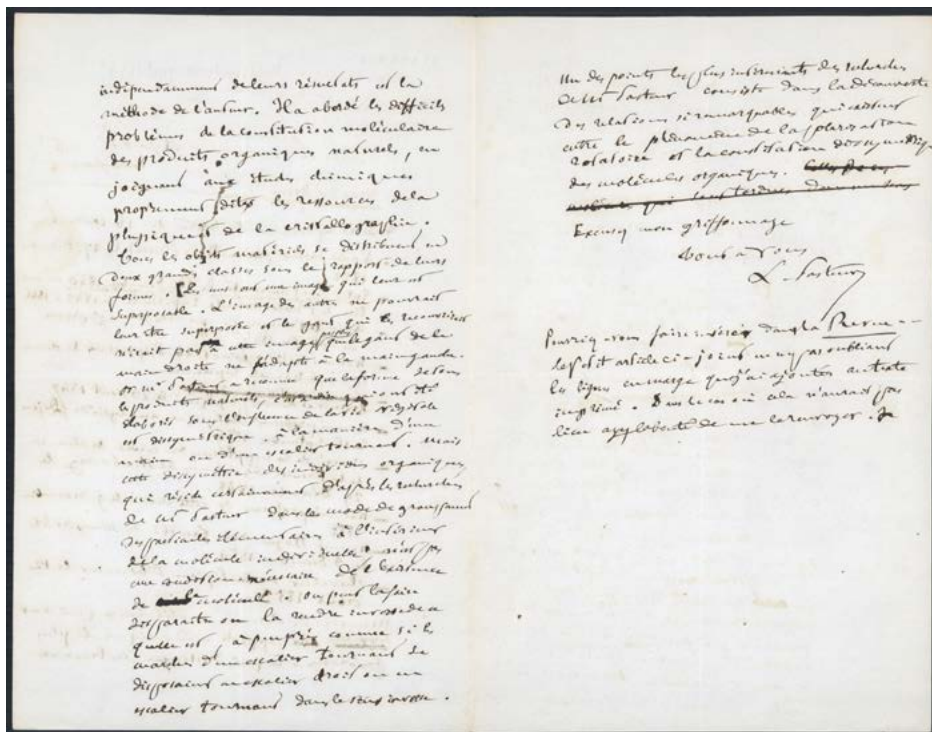 indépendamment de leurs résultats et la
méthode de l'auteur. Il a abordé les difficiles
problèmes de la constitution moléculaire
des produits organiques naturels, en
joignant aux études chimiques
proprement dites les ressources de la
physique et de la cristallographie.
Tous les objets matériels se distribuent en
deux grandes classes sous le rapport de leurs
formes. Les uns ont une image qui leur est
superposable. L'image des autres ne pourrait
leur être superposée et le gant qui les
serait pas à cette image que le gant de la
main droite ne s'adapte à la main gauche.
Or Mr Pasteur a reconnu que la forme de tous
les produits naturels, qui ont été
élaborés sous l'influence de la vie végétale
est dissymétrique à la manière d'une
main ou d'un escalier tournant. Mais
cette dissymétrie des molécules organiques
qui réside certainement d'après les recherches
de Mr Pasteur dans le mode de groupement
des particules élémentaires à l'intérieur
de la molécule individuelle n'est pas
une condition nécessaire de l'existence
de la molécule : on peut la faire
disparaître ou la rendre inverse de ce
qu'elle est à peu près comme si les
marches d'un escalier tournant se
disposaient en escalier droit ou en
escalier tournant dans le sens inverse.
Un des points les plus intéressants des recherches
de Mr Pasteur consiste dans la découverte
des relations si remarquables qui existent
entre le phénomène de la polarisation
rotatoire et la constitution dissymétrique
des molécules organiques.
Excusez mon griffonnage
Tout à vous
L. Pasteur
Pourriez-vous faire insérer dans la Revue
le petit article ci-joint en n'y oubliant
les lignes en marge que j'ai ajoutées au texte
imprimé. Dans le cas où cela n'aurait pas
lieu ayez la bonté de me le renvoyer. Je